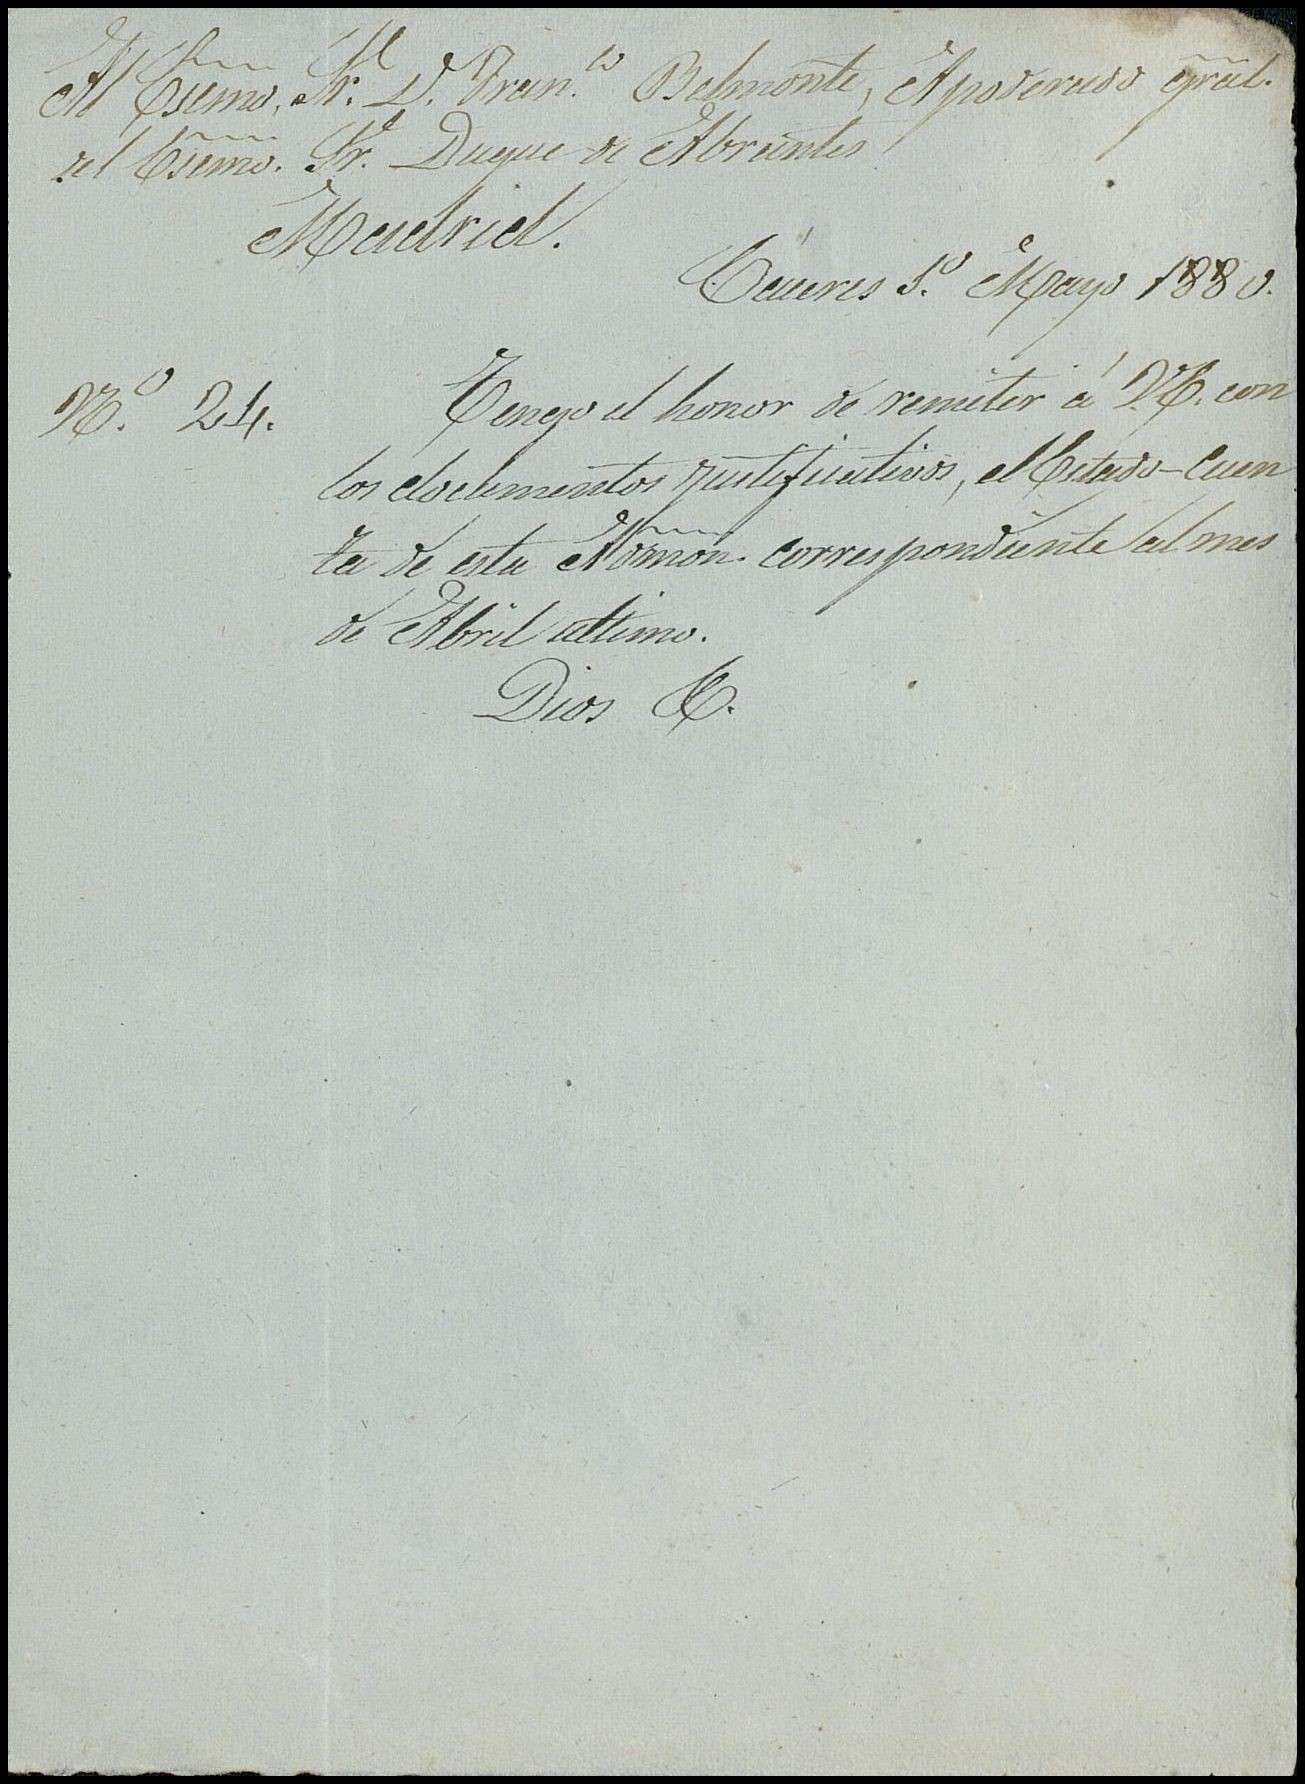 Al Esemo. Sr. D. Fran.co Belmonte, Apoderado gral.
del Esemo. Sr. Duque de Abrantes
Madrid.
Cáceres 1.º Mayo 1880.
N.º 24.
Tengo el honor de remitir á V.E. con
los doclumentos justificativos, el Estado-Cuen
ta de esta Admón. correspondiente al mes
de Abril ultimo.
Dios &.